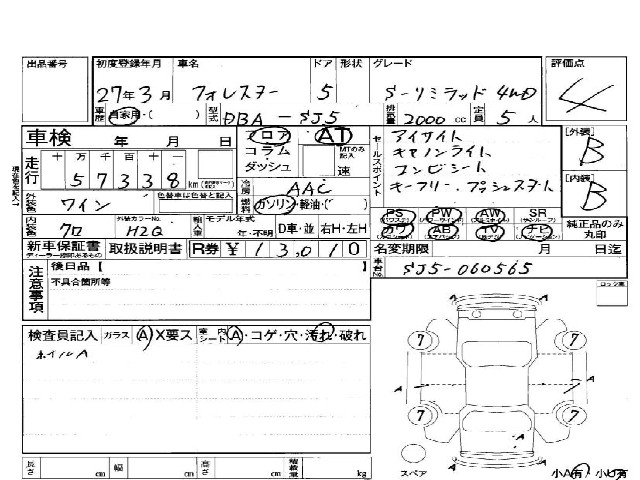 出品番号 初度登録年月 車名 ドア 形状 グレード 評価点
27年3月 フォレスター 5 S-リミテッド 4WD 4
車歴 自家用・( ) 型式 DBA-SJ5 排気量 2000 cc 定員 5 人
車検 年 月 日 フロア AT
コラム MTのみ記入
ダッシュ 速
走行 十 万 千 百 十 一
5 7 3 3 8 km
冷房 AAC
外装色 ワイン 色替車は色替と記入 燃料 ガソリン・軽油・( )
内装色 クロ 外装カラーNo. H2Q 輸入車 モデル年式 年・不明 D車・並 右H・左H
新車保証書 取扱説明書 R券 ¥ 13,010
ディーラー捺印あるもの
セールスポイント アイサイト
キセノンライト
コンビシート
キーフリー プッシュスタート
[外装] B
[内装] B
PS PW AW SR
カワ AB TV ナビ
純正品のみ丸印
名変期限 月 日迄
車台No. SJ5-060565
注意事項 後日品【 】
不具合箇所等
検査員記入 ガラス A X要ス 室内シート A・コゲ・穴・汚れ・破れ
ホイルA
ロック無
7 7
A A A
7 7
A
スペア 小A有 / 小U有
長さ cm 幅 cm 高さ cm 積載量 kg